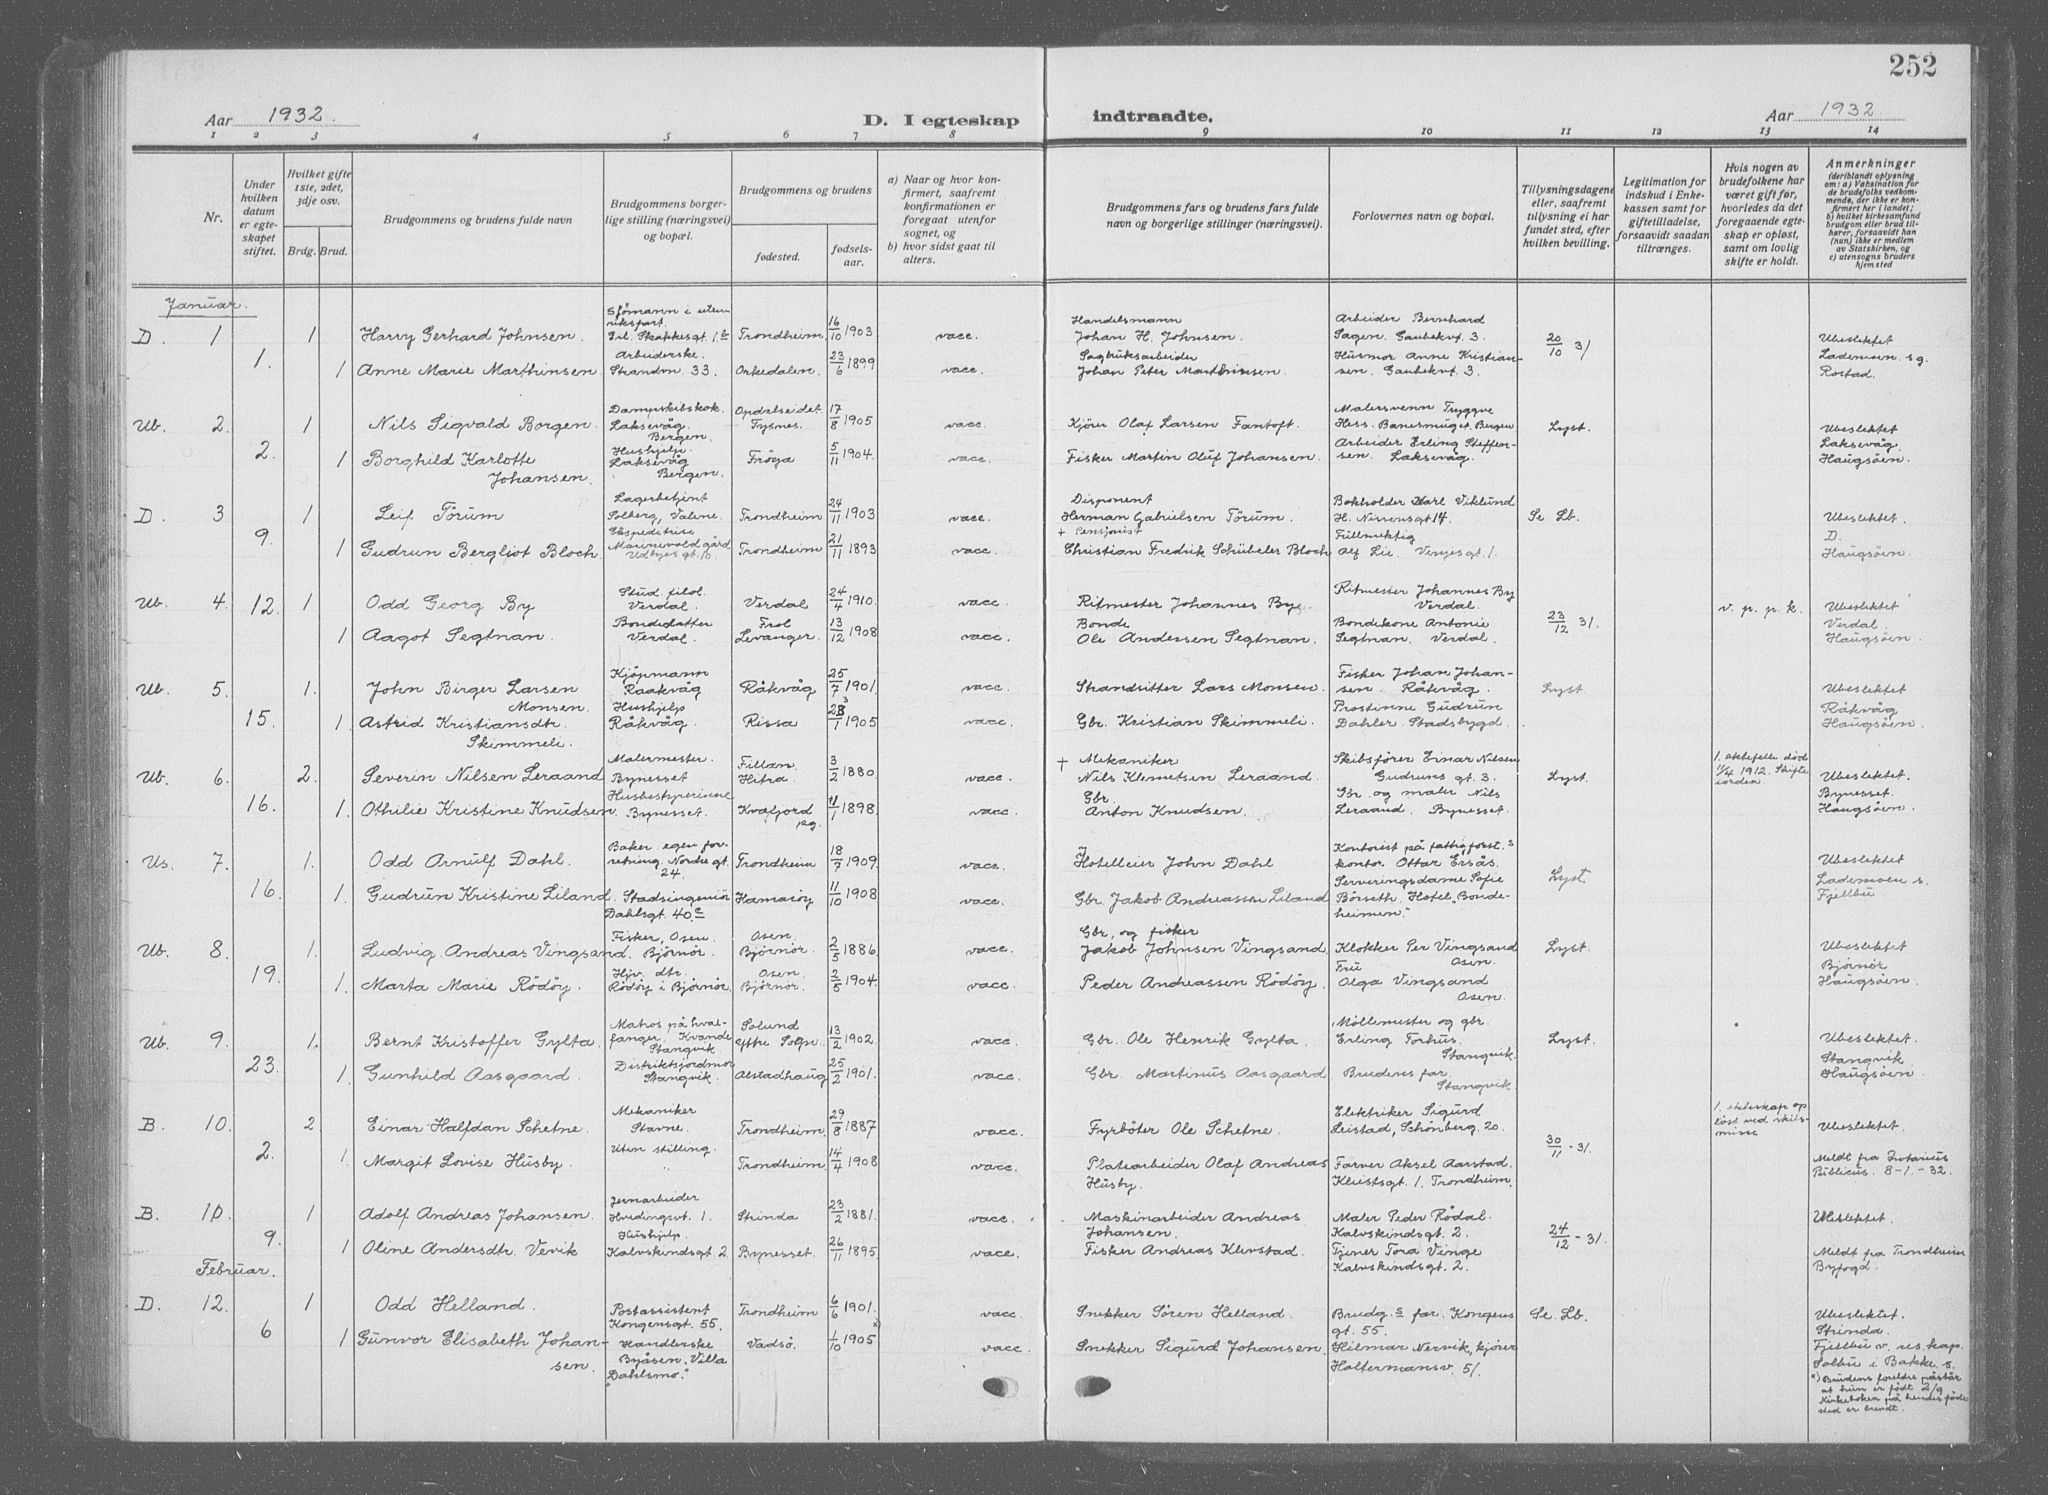 252
Aar 1932. D. I egteskap indtraadte. Aar 1932
1 2 3 4 5 6 7 8 9 10 11 12 13 14
Nr.
Under hvilken datum er egteskapet stiftet.
Hvilket gifte 1ste, 2det, 3dje osv.
Brdg. Brud.
Brudgommens og brudens fulde navn
Brudgommens borgerlige stilling (næringsvei) og bopæl.
Brudgommens og brudens
fødested. fødselsaar.
a) Naar og hvor konfirmert, saafremt konfirmationen er foregaat utenfor sognet, og
b) hvor sidst gaat til alters.
Brudgommens fars og brudens fars fulde navn og borgerlige stillinger (næringsvei).
Forlovernes navn og bopæl.
Tillysningsdagene eller, saafremt tillysning ei har fundet sted, efter hvilken bevilling.
Legitimation for indskud i Enkekassen samt for giftetilladelse, forsaavidt saadan tiltrænges.
Hvis nogen av brudefolkene har været gift før, hvorledes da det foregaaende egteskap er opløst, samt om lovlig skifte er holdt.
Anmerkninger (deriblandt oplysning om: a) Vaksination for de brudefolks vedkommende, der ikke er konfirmert her i landet; b) hvilket kirkesamfund brudgom eller brud tilhører, forsaavidt han (hun) ikke er medlem av Statskirken, og c) utensogns bruders hjemsted
Januar.
D. 1 1 Harry Gerhard Johnsen. Sjömann i utenriksfart. Gil. Skakkesgt. 1 b Trondheim 16/10 1903 vacc. Handelsmann Johan H. Johnsen. Arbeider Bernhard Sagen. Gaubekvt. 3. 20/10 31 Ubeslektet
1. 1 Anne Marie Marthinsen Arbeiderske. Strandvn 33. Orkedalen. 23/6 1899 vacc. Sagbruksarbeider Johan Peter Marthinsen. Husmor Anne Kristiansen. Gaubekvt. 3. Lademoen s g. Rostad.
Ub. 2. 1 Nils Sigvald Borgen. Dampskibskok. Laksevåg. Bergen. Opdalseidet. Tysnes. 17/8 1905 vacc. Kjörer Olaf Larsen Fantoft. Malersvenn Tryggve Hess. Banesmuget. Bergen Lyst. Ubeslektet
2. 1 Borghild Karlotte Johansen. Hushjelp Laksevåg Bergen. Fröya 5/11 1904. vacc. Fisker Martin Oluf Johansen. Arbeider Erling Steffensen. Laksevåg. Laksevåg. Haugsöen.
D. 3 1 Leif Törum Lagerbetjent Solberg, Valene. Trondheim 24/11 1903 vacc. Disponent Herman Gabrielsen Törum. Bokholder Karl Viklund H. Nissensgt 14. Se Lb. Ubeslektet.
9. 1 Gudrun Bergliot Bloch Ekspeditrise Marinevold gård Udbyes gt. 10. Trondheim 21/11 1893 vacc. + Pensjonist Christian Fredrik Schübeler Bloch Fullmektig Olf Lie. Vinjesgt. 1. D. Haugsöen.
Ub. 4. 12. 1 Odd Georg By Stud. filol. Verdal. Verdal 24/4 1910. vacc. Ritmester Johannes By. Ritmester Johannes By Verdal. 23/12 31. v. p. p. k. Ubeslektet
1 Aagot Segtnan. Bondedatter Verdal. Frol Levanger. 13/12 1908 vacc. Bonde Ole Andersen Segtnan. Bondekone Antonie Segtnan. Verdal. Verdal. Haugsöen.
Ub. 5. 1. John Birger Larsen Monsen. Kjöpmann Raakvåg Råkvåg 25/7 1901. vacc. Strandsitter Lars Monsen. Fisker Johan Johansen. Råkvåg. Lyst. Ubeslektet
15. 1 Astrid Kristiansdtr. Skimmeli. Hushjelp Råkvåg. Rissa 23/1 1905 vacc. Gbr. Kristian Skimmeli. Prostinne Gudrun Dahler. Stadsbygd. Råkvåg Haugsöen.
Ub. 6. 2. Severin Nilsen Leraand Malermester. Bynesset Fillan. Hitra. 3/2 1880. vacc. + Mekaniker Nils Klemetsen Leraand. Skibsförer Einar Nilsen Gudruns gt. 3. Lyst. 1. ektefelle död 11/4 1912. Skifte iorden. Ubeslektet.
16. 1. Othilie Kristine Knudsen. Husbestyrerinne Bynesset. Kvæfjord pg. 11/1 1898. vacc. Gbr. Anton Knudsen. Gbr og maler Nils Leraand. Bynesset. Bynesset. Haugsöen.
Us. 7. 1. Odd Arnulf Dahl. Baker egen forretning. Nordre gt. 24. Trondheim 18/7 1909. vacc. Hotelleier John Dahl Kontorist på fattigforst.s kontor. Ottar Ersås. Lyst. Ubeslektet
16. 1. Gudrun Kristine Liland. Stadsingeniör Dahlsgt. 40 c Hamaröy 11/10 1908 vacc. Gbr. Jakob Andreassen Liland Serveringsdame Sofie Börseth. Hotel "Bondeheimen". Lademoen s. Fjellbu
Ub. 8. 1. Ludvig Andreas Vingsand. Fisker, Osen. Björnör. Osen. Björnör 2/5 1886. vacc. Gbr. og fisker Jakob Johnsen Vingsand Klokker Per Vingsand Osen. Lyst. Ubeslektet
19. 1. Marta Marie Rödöy. Hjv. dtr. Rödöy i Björnör. Osen. Björnör. 2/5 1904. vacc. Peder Andreassen Rödöy. Fru Olga Vingsand Osen. Björnör Haugsöen.
Ub. 9. 1. Bernt Kristoffer Gylta. Matros på hvalfanger. Kvande Stangvik Solund Yttre Sogn. 13/2 1902. vacc. Gbr. Ole Henrik Gylta. Möllemester og gbr. Erling Torhus. Stangvik. Lyst. Ubeslektet.
23. 1 Gunhild Aasgaard. Distriktsjordmor Stangvik. Alstadhaug 25/2 1901. vacc. Gbr. Martinus Aasgaard Brudens far. Stangvik. Stangvik Haugsöen.
B. 10. 2. Einar Halfdan Schetne. Mekaniker Stavne. Trondheim. 29/8 1887 vacc. Fyrböter Ole Schetne. Elektriker Sigurd Leistad, Schönberg. 20. 30/11 - 31. 1. ekteskap oplöst ved skilsmisse Ubeslektet.
2. 1. Margit Lovise Husby. Uten stilling. Trondheim 14/4 1908 vacc. Platearbeider Olaf Andreas Husby. Farver Aksel Aarstad. Kleistsgt. 1. Trondheim. Meldt fra Notarius Publicus. 8-1.-32.
B. 10. 1 Adolf Andreas Johansen. Jernarbeider Hvedingsvt. 1. Strinda 23/2 1881. vacc. Maskinarbeider Andreas Johansen. Maler Peder Rödal. Kalvskindsgt. 2. 24/12 - 31. Ubeslektet.
9. 1 Oline Andersdtr. Vevik Hushjelp. Kalvskindsgt. 2 Bynesset. 26/11 1895 vacc. Fisker Andreas Klevstad. Tjener Tora Vinge Kalvskindsgt. 2. Meldt fra Trondheim Byfogd.
Februar.
D. 12. 1 Odd Helland. Postassistent Kongensgt. 55. Trondheim 6/6 1901. vacc. Snekker Sören Helland. Brudg.s far. Kongens gt. 55. Se. Lb. Ubeslektet.
6 1 Gunvor Elisabeth Johansen. Handlerske Byåsen. Villa "Dahlsmo". Vadsö. 1/10 1905 x vacc. Snekker Sigurd Johansen. Hilmar Nervik, kjörer Haltermansv. 51. Strinda. Fjellbu v. res.kap. Solbu i Bakke s.
x) Brudens foreldre påstår at hun er födt 2/9 Kirkeboken på hendes födested er brendt.